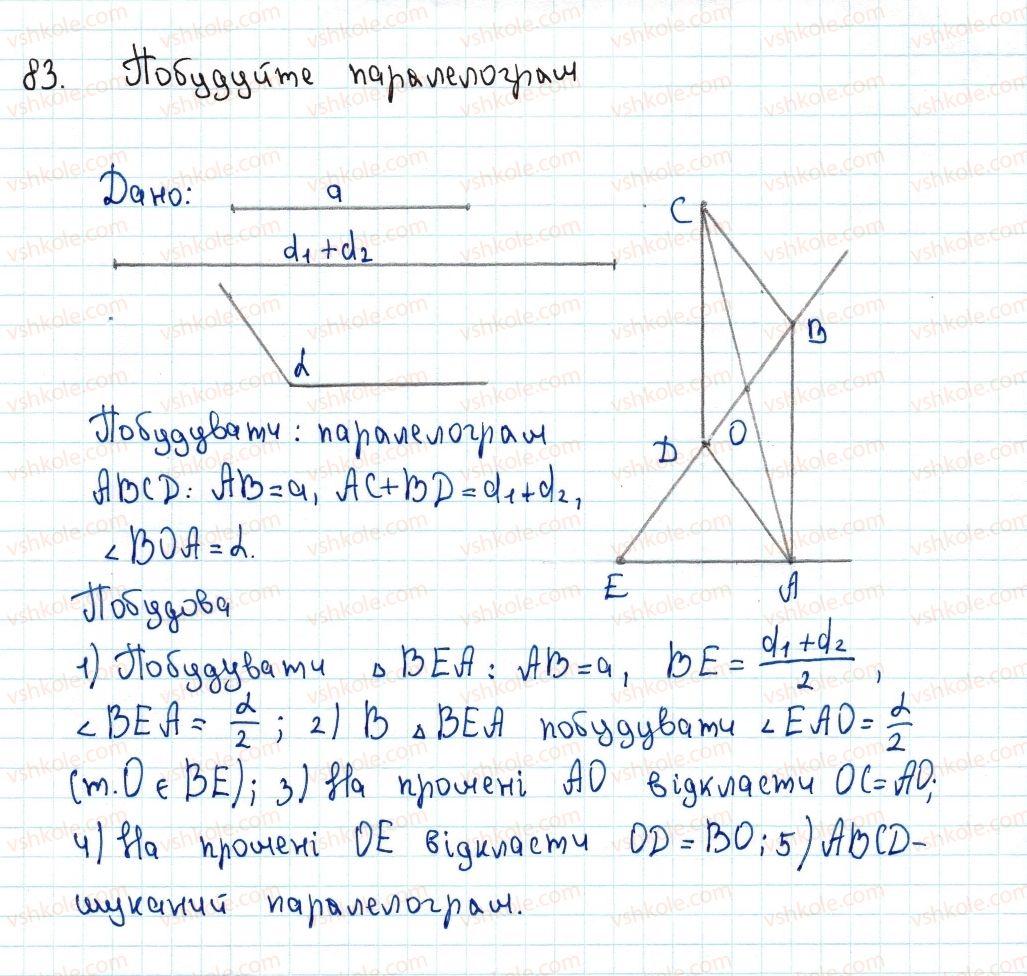 83. Побудуйте паралелограм
Дано:
a
d₁+d₂
α
C
B
D
O
E
A
Побудувати: паралелограм
ABCD: AB=a, AC+BD=d₁+d₂,
∠BOA=α.
Побудова
1) Побудувати ΔBEA: AB=a, BE=(d₁+d₂)/2,
∠BEA=α/2; 2) В ΔBEA побудувати ∠EAO=α/2
(т.O∈BE); 3) На промені AO відкласти OC=AO;
4) На промені OE відкласти OD=BO; 5) ABCD-
шуканий паралелограм.